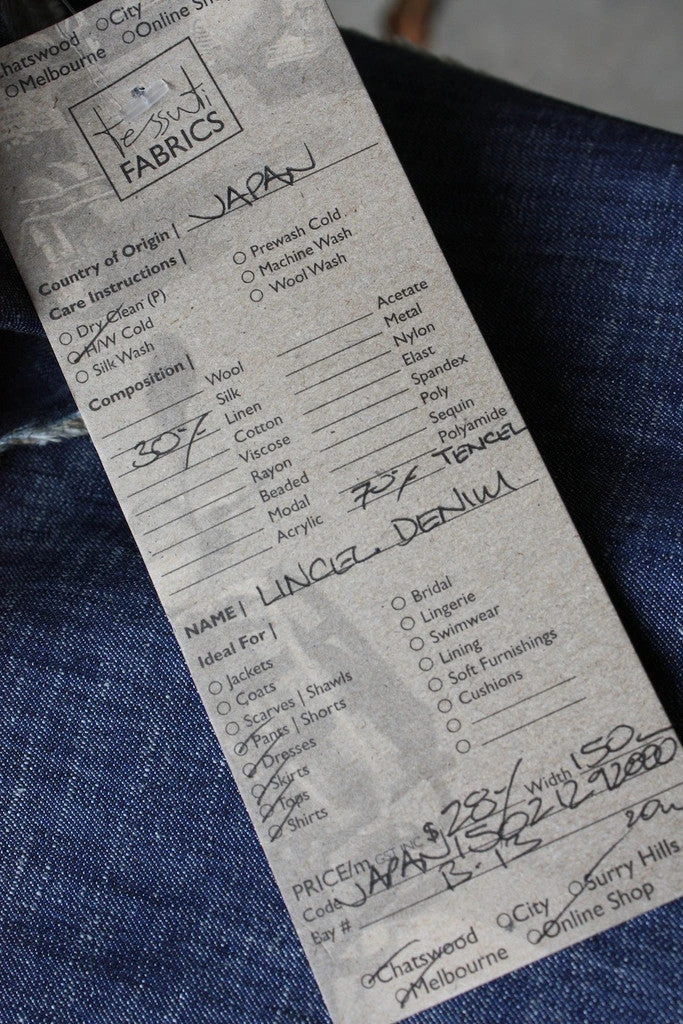 Chatswood ○City
○Melbourne ○Online Sh
tessuti
FABRICS
Country of Origin | JAPAN
Care Instructions |
○ Dry Clean (P)
○ H/W Cold
○ Silk Wash
○ Prewash Cold
○ Machine Wash
○ Wool Wash
Composition |
Wool
Silk
30% Linen
Cotton
Viscose
Rayon
Beaded
Modal
Acrylic
Acetate
Metal
Nylon
Elast
Spandex
Poly
Sequin
Polyamide
70% TENCEL
NAME | LINCEL DENIM
Ideal For |
○ Jackets
○ Coats
○ Scarves | Shawls
○ Pants | Shorts
○ Dresses
○ Skirts
○ Tops
○ Shirts
○ Bridal
○ Lingerie
○ Swimwear
○ Lining
○ Soft Furnishings
○ Cushions
○
○
PRICE/m GST INC $ 28-/ Width 150
Code JAPAN150212-92000
Bay # B-13 20m
○Chatswood ○City ○Surry Hills
○Melbourne ○Online Shop